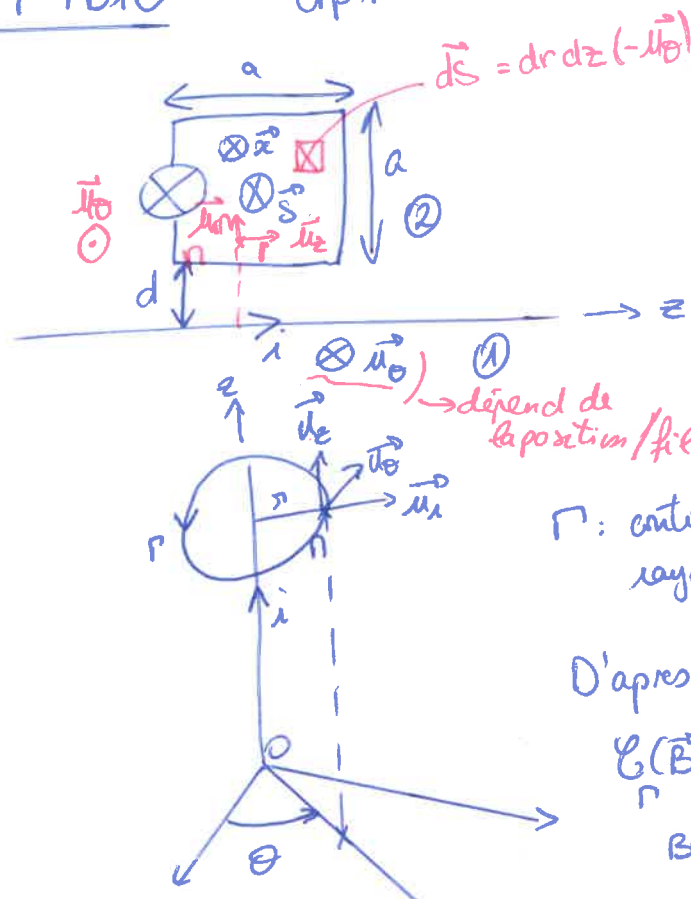 a
d⃗S = dr dz (-u⃗θ)
⊗ x⃗
a
u⃗θ
⊗ S⃗
②
u⃗r
u⃗z
d
i
→ z
⊗ u⃗θ
①
→ dépend de
la position / fil
z
u⃗z
u⃗θ
r
u⃗r
Γ
Γ:
i
D'apres
O
Γ
B
θ